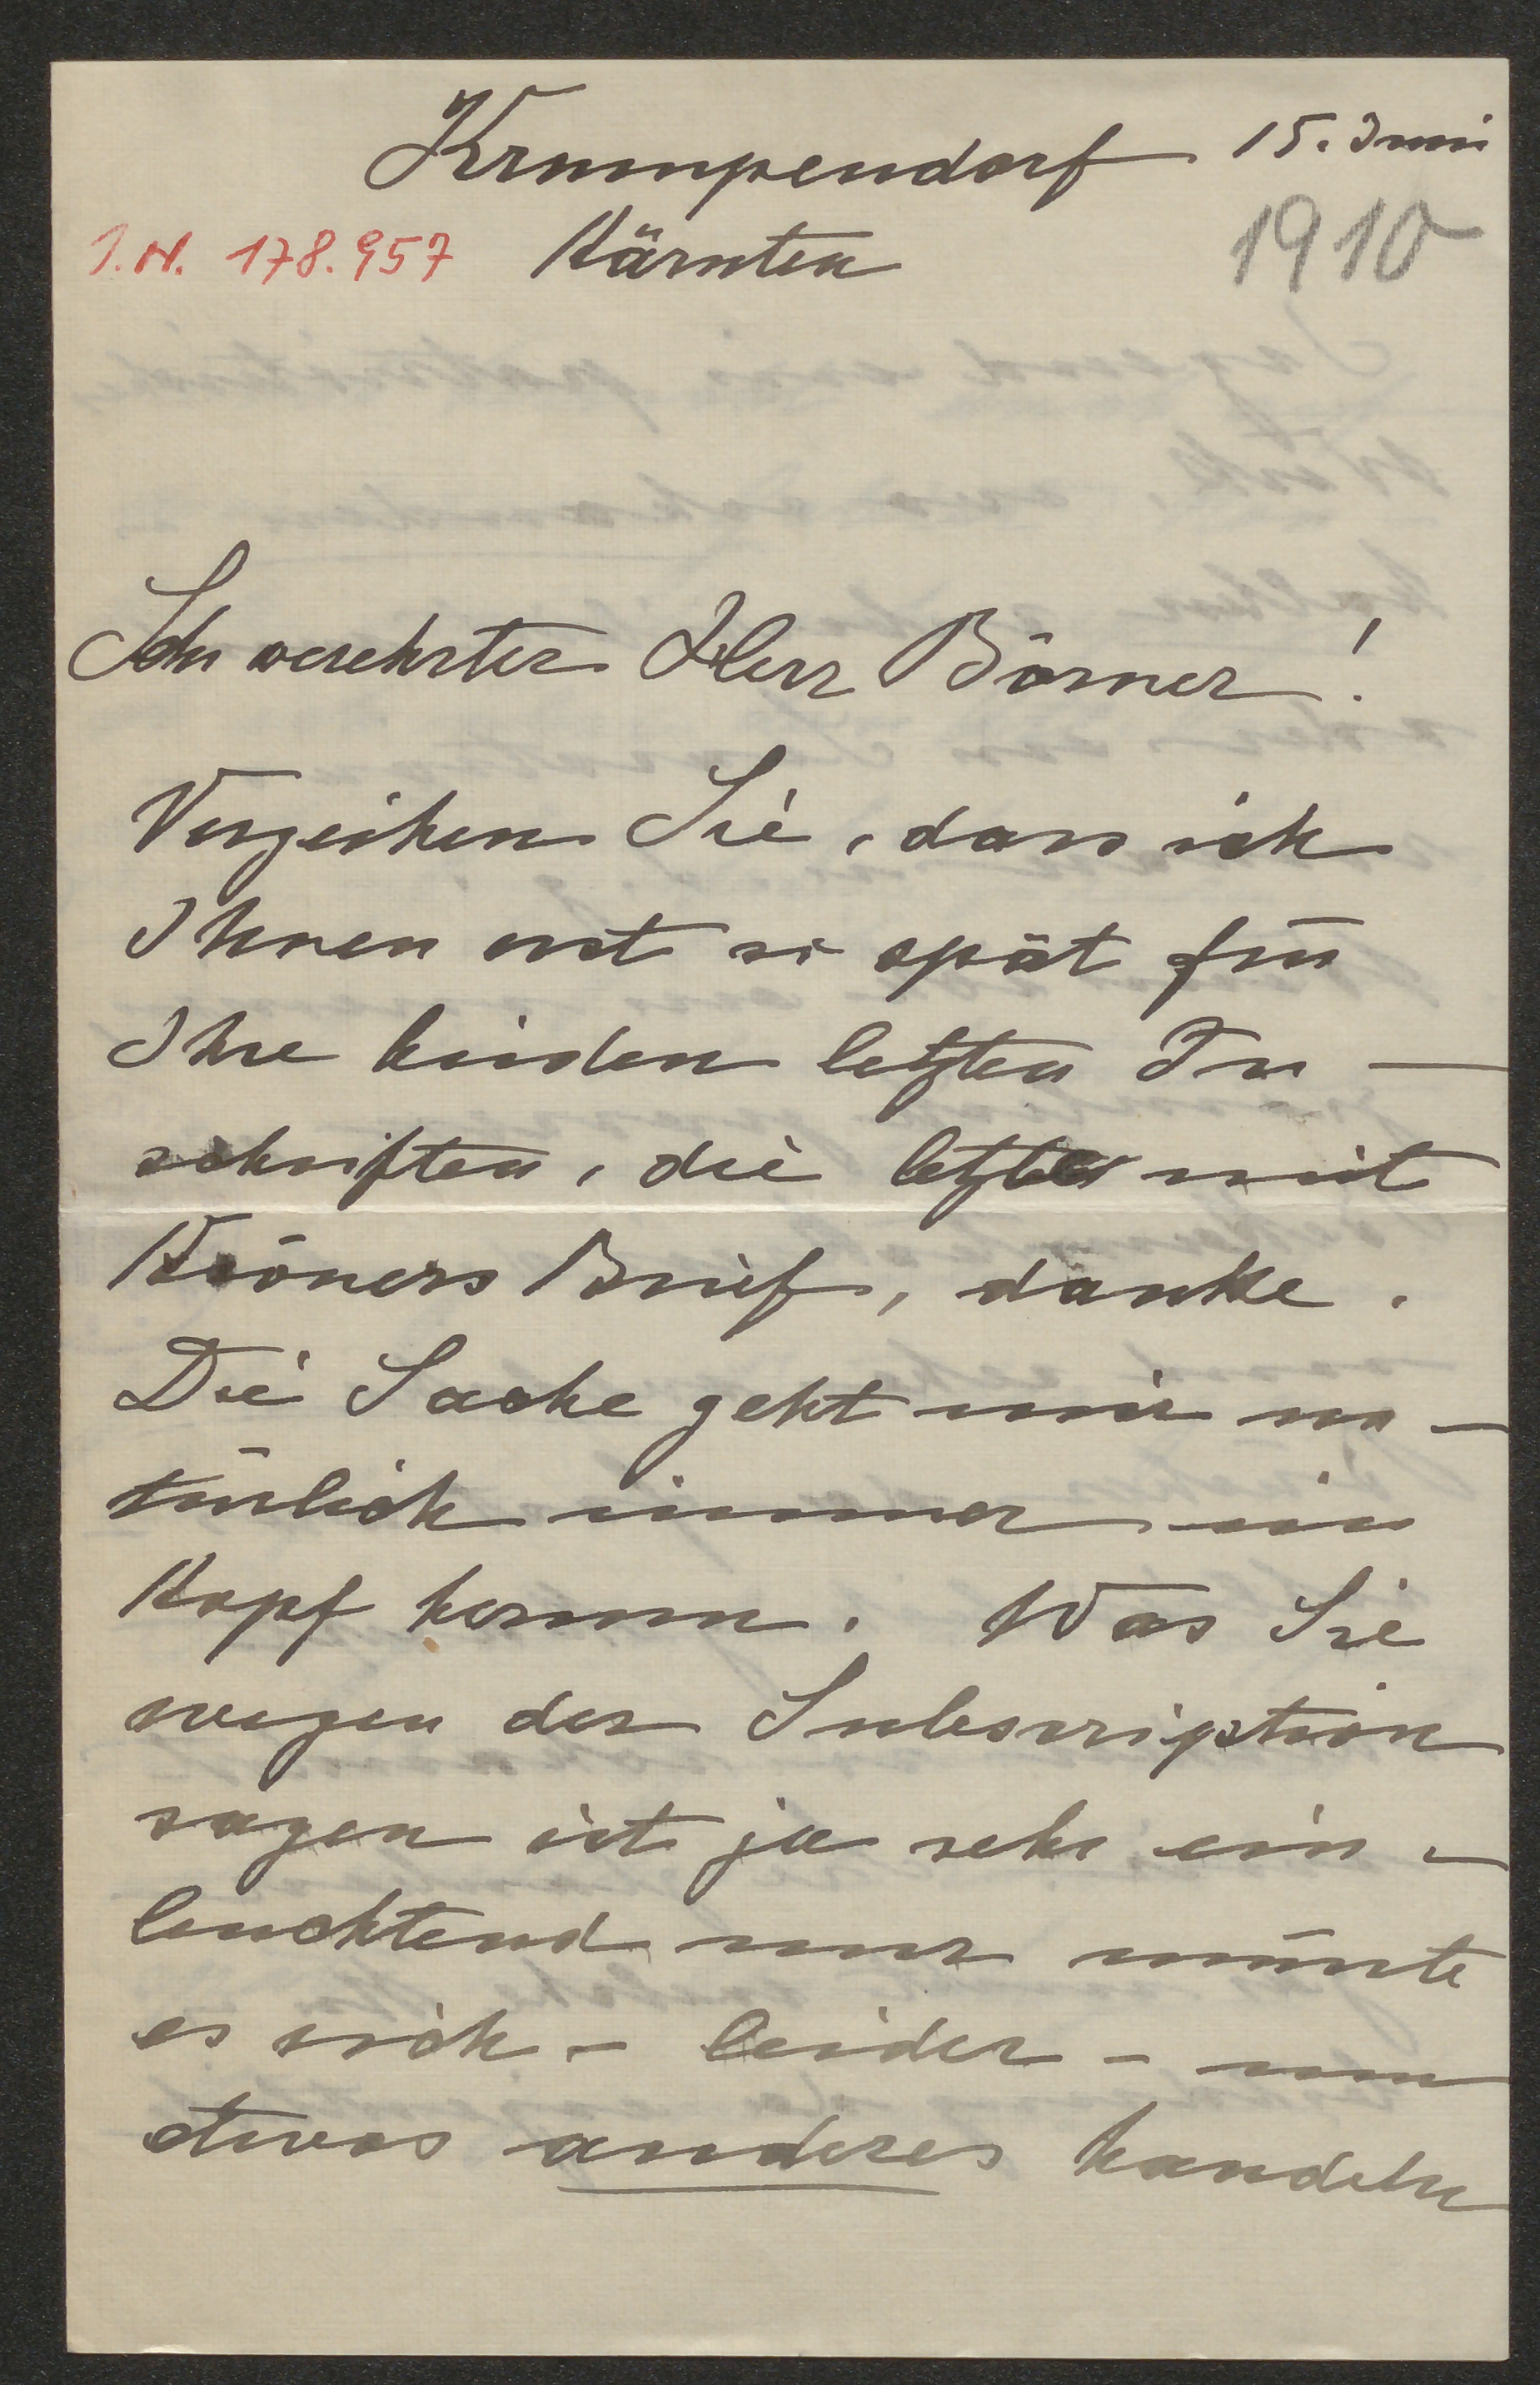 Krumpendorf 15. Juni
I.N. 178.957 Kärnten 1910
Sehr verehrter Herr Börner!
Verzeihen Sie, dass ich
Ihnen erst so spät für
Ihre beiden letzten Zu-
schriften, die letzte mit
Kröners Brief, danke.
Die Sache geht mir na-
türlich immer im
Kopf herum. Was Sie
wegen der Subscription
sagen ist ja sehr ein-
leuchtend nur müsste
es sich - leider - um
etwas anderes handeln